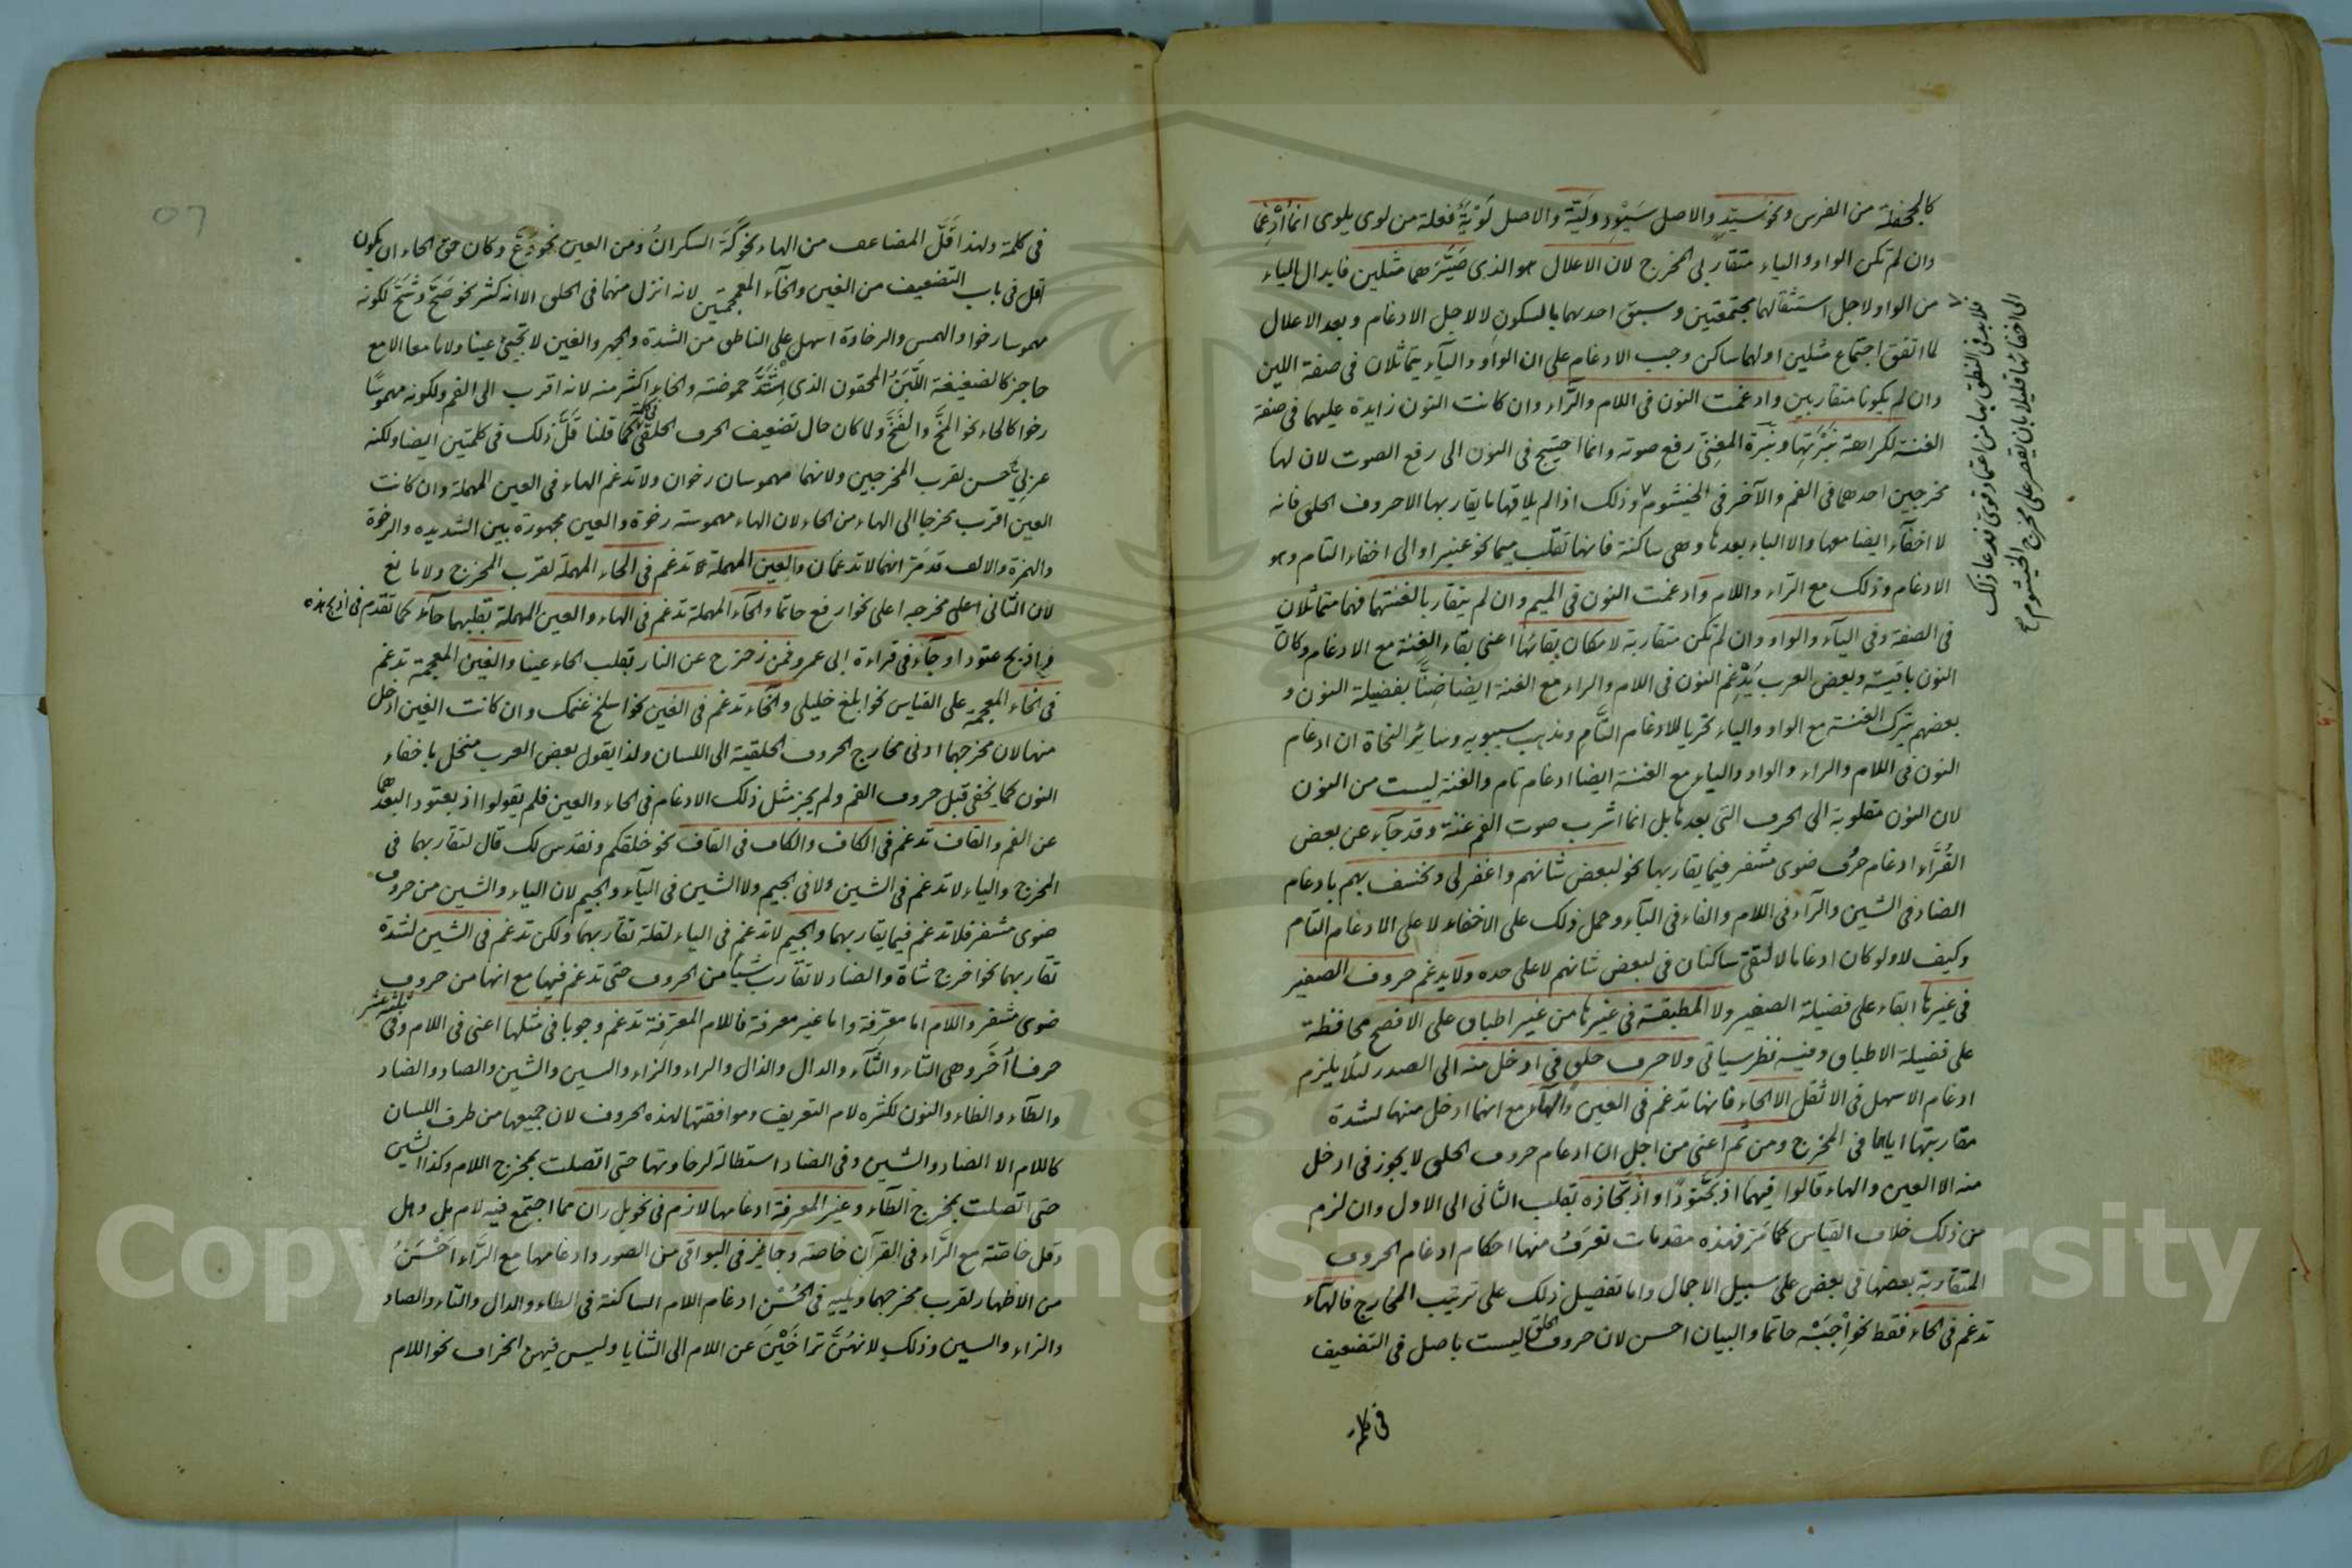 كالجحفلة من الفرس ونحو سيّد والاصل سَيْوِد وليّة والاصل لَوْيَةٌ فعلة من لوى يلوى انما أُدْغِما
وان لم تكن الواو والياء متقاربى المخرج لان الاعلال هو الذى صَيَّرَهما مثلين فابدال الياء
من الواو لاجل استثقالهما مجتمعتين وسبق احديهما بالسكون لا لاجل الادغام وبعد الاعلال
لما اتفق اجتماع مثلين اولهما ساكن وجب الادغام على ان الواو والياء يتماثلان فى صفة اللين
وان لم يكونا متقاربين وادغمت النون فى اللام والرّاء وان كانت النون زايدة عليهما فى صفة
الغنة لكراهة نَبْرَتِها ونَبرة المغنّى رفع صوته وانما احتيج فى النون الى رفع الصوت لان لها
مخرجين احدهما فى الفم والآخر فى الخيشوم وذلك اذا لم يلاقها ما يقاربها الا حروف الحلق فانه
لا اخفاء ايضا معها والا الباء بعدها وهى ساكنة فانها تقلب ميما نحو عنبر او الى اخفاء التام وهو
الادغام وذلك مع الرّاء واللام وادغمت النون فى الميم وان لم يتقاربا لغنتهما فهما متماثلان
فى الصفة وفى الياء والواو وان لم تكن متقاربة لامكان بقائها اعنى بقاء الغنة مع الادغام وكان
النون باقية وبعض العرب يُدْغِم النون فى اللام والراء مع الغنة ايضا ضِنًّا بفضيلة النون و
بعضهم يترك الغنة مع الواو والياء تحريا للادغام التَّام ومذهب سيبويه وسائر النحاة ان ادغام
النون فى اللام والراء والواو والياء مع الغنة ايضا ادغام تام والغنة ليست من النون
لان النون مقلوبة الى الحرف التى بعدها بل انما اشرب صوت الفم غنة وقد جاء عن بعض
القُرَّاء ادغام حرف ضوى مشفر فيما يقاربها نحو لبعض شانهم واغفر لى ونخسف بهم بادغام
الضاد فى الشين والرّاء فى اللام والفاء فى الباء وحمل ذلك على الاخفاء لا على الادغام التام
وكيف لا ولو كان ادغاما لالتقى ساكنان فى لبعض شانهم لا على حده ولا يدغم حروف الصفير
فى غيرها ابقاء على فضيلة الصفير ولا المطبقة فى غيرها من غير اطباق على الافصح محافظة
على فضيلة الاطباق وفيه نظر سياتى ولا حرف حلق فى ادخل منه الى الصدر لئلا يلزم
ادغام الاسهل فى الاثقل الا الحاء فانها تدغم فى العين والهاء مع انهما ادخل منها لشدة
مقاربتها اياهما فى المخرج ومن ثم اعنى من اجل ان ادغام حروف الحلق لا يجوز فى ادخل
منه الا العين والهاء قالوا فيهما اذ بَحَّتودًا واذ بَحّاذه بقلب الثانى الى الاول وان لزم
من ذلك خلاف القياس كما مَرّ فهذه مقدمات تعرَفُ منها احكام ادغام الحروف
المتقاربة بعضها فى بعض على سبيل الاجمال واما تفصيل ذلك على ترتيب المخارج فالهاء
تدغم فى الحاء فقط نحو اِجْبَه حاتما والبيان احسن لان حروف الحلق ليست باصل فى التضعيف
فى كلمة
فلا بد فى النطق بها من اعتماد قوى فدعا ذلك
الى اخفائها قليلا بان يقصر على مخرج الخيشوم صح
فى كلمة ولهذا قَلَّ المضاعف من الهاء نحو كَهَّ السكرانُ ومن العين نحو دَعَّ وكان حق الحاء ان يكون
اقل فى باب التضعيف من الغين والخاء المعجمتين لانه انزل منهما فى الحلق الا انه كثر نحو صَحَّ وشَحَّ لكونه
مهموسا رخوا والهمس والرخاوة اسهل على الناطق من الشدة والجهر والغين لا تجيئ عينا ولاما معا الا مع
حاجز كالضغيغة اللَّبَنُ المحقون الذى اشتدَّ حموضته والخاء اكثر منه لانه اقرب الى الفم ولكونه مهموسًا
رخوا كالحاء نحو المخَّ والفَخَّ ولما كان حال تضعيف الحرف الحلقى فى كلمة كما قلنا قَلَّ ذلك فى كلمتين ايضا ولكنه
عربىٌّ حسن لقرب المخرجين ولانهما مهموسان رخوان ولا تدغم الهاء فى العين المهملة وان كانت
العين اقرب مخرجا الى الهاء من الحاء لان الهاء مهموسة رخوة والعين مجهورة بين الشديده والرخوة
والهمزة والالف قد مَرّ انهما لا تدغمان والعين المهملة تدغم فى الحاء المهملة لقرب المخرج ولا مانع
لان الثانى اعلى مخرجه اعلى نحو ارفع حاتما والحاء المهملة تدغم فى الهاء والعين المهملة بقلبهما حاء كما تقدم فى اذبح هذه
واذبح عتودا وجاء فى قراءة ابى عمرو فمن زحزح عن النار بقلب الحاء عينا والغين المعجمة تدغم
فى الخاء المعجمة على القياس نحو ابلغ خليلى والخاء تدغم فى الغين نحو اسلخ غنمك وان كانت الغين ادخل
منها لان مخرجهما ادنى مخارج الحروف الحلقية الى اللسان ولذا يقول بعض العرب منخل باخفاء
النون كما يخفى قبل حروف الفم ولم يجز مثل ذلك الادغام فى الحاء والعين فلم يقولوا اذ بعتود لبعدهما
عن الفم والقاف تدغم فى الكاف والكاف فى القاف نحو خلقكم ونقدس لك قال لتقاربهما فى
المخرج والياء لا تدغم فى الشين ولا فى الجيم ولا الشين فى الياء والجيم لان الياء والشين من حروف
ضوى مشفر فلا تدغم فيما يقاربهما والجيم لا تدغم فى الياء لقلة تقاربهما ولكن تدغم فى الشين لشدة
تقاربهما نحو اخرج شاة والضاد لا تقارب شيأ من الحروف حتى تدغم فيها مع انها من حروف
ضوى مشفر واللام اما معرّفة واما غير معرفة فاللام المعرّفة تدغم وجوبا فى مثلها اعنى فى اللام وفى ثلثة عشر
حرفا أُخَر وهى التاء والثاء والدال والذال والراء والزاء والسين والشين والصاد والضاد
والطاء والظاء والنون لكثره لام التعريف وموافقتها لهذه الحروف لان جميعها من طرف اللسان
كاللام الا الضاد والشين وفى الضاد استطالة لرخاوتها حتى اتصلت بمخرج اللام وكذا الشين
حتى اتصلت بمخرج الطاء وغير المعرفة ادغامها لازم فى نحو بل ران مما اجتمع فيه لام بل وهل
وقل خاصّة مع الرَّاء فى القرآن خاصة وجايز فى البواقى من الصور وادغامها مع الرَّاء اَحْسَنُ
من الاظهار لقرب مخرجهما ويليه فى الحُسْنِ ادغام اللام الساكنة فى الطاء والدال والتاء والصاد
والزاء والسين وذلك لانهُنَّ تراخَيْنَ عن اللام الى الثنايا وليس فيهن انحراف نحو اللام
Copyright © King Saud University
1957